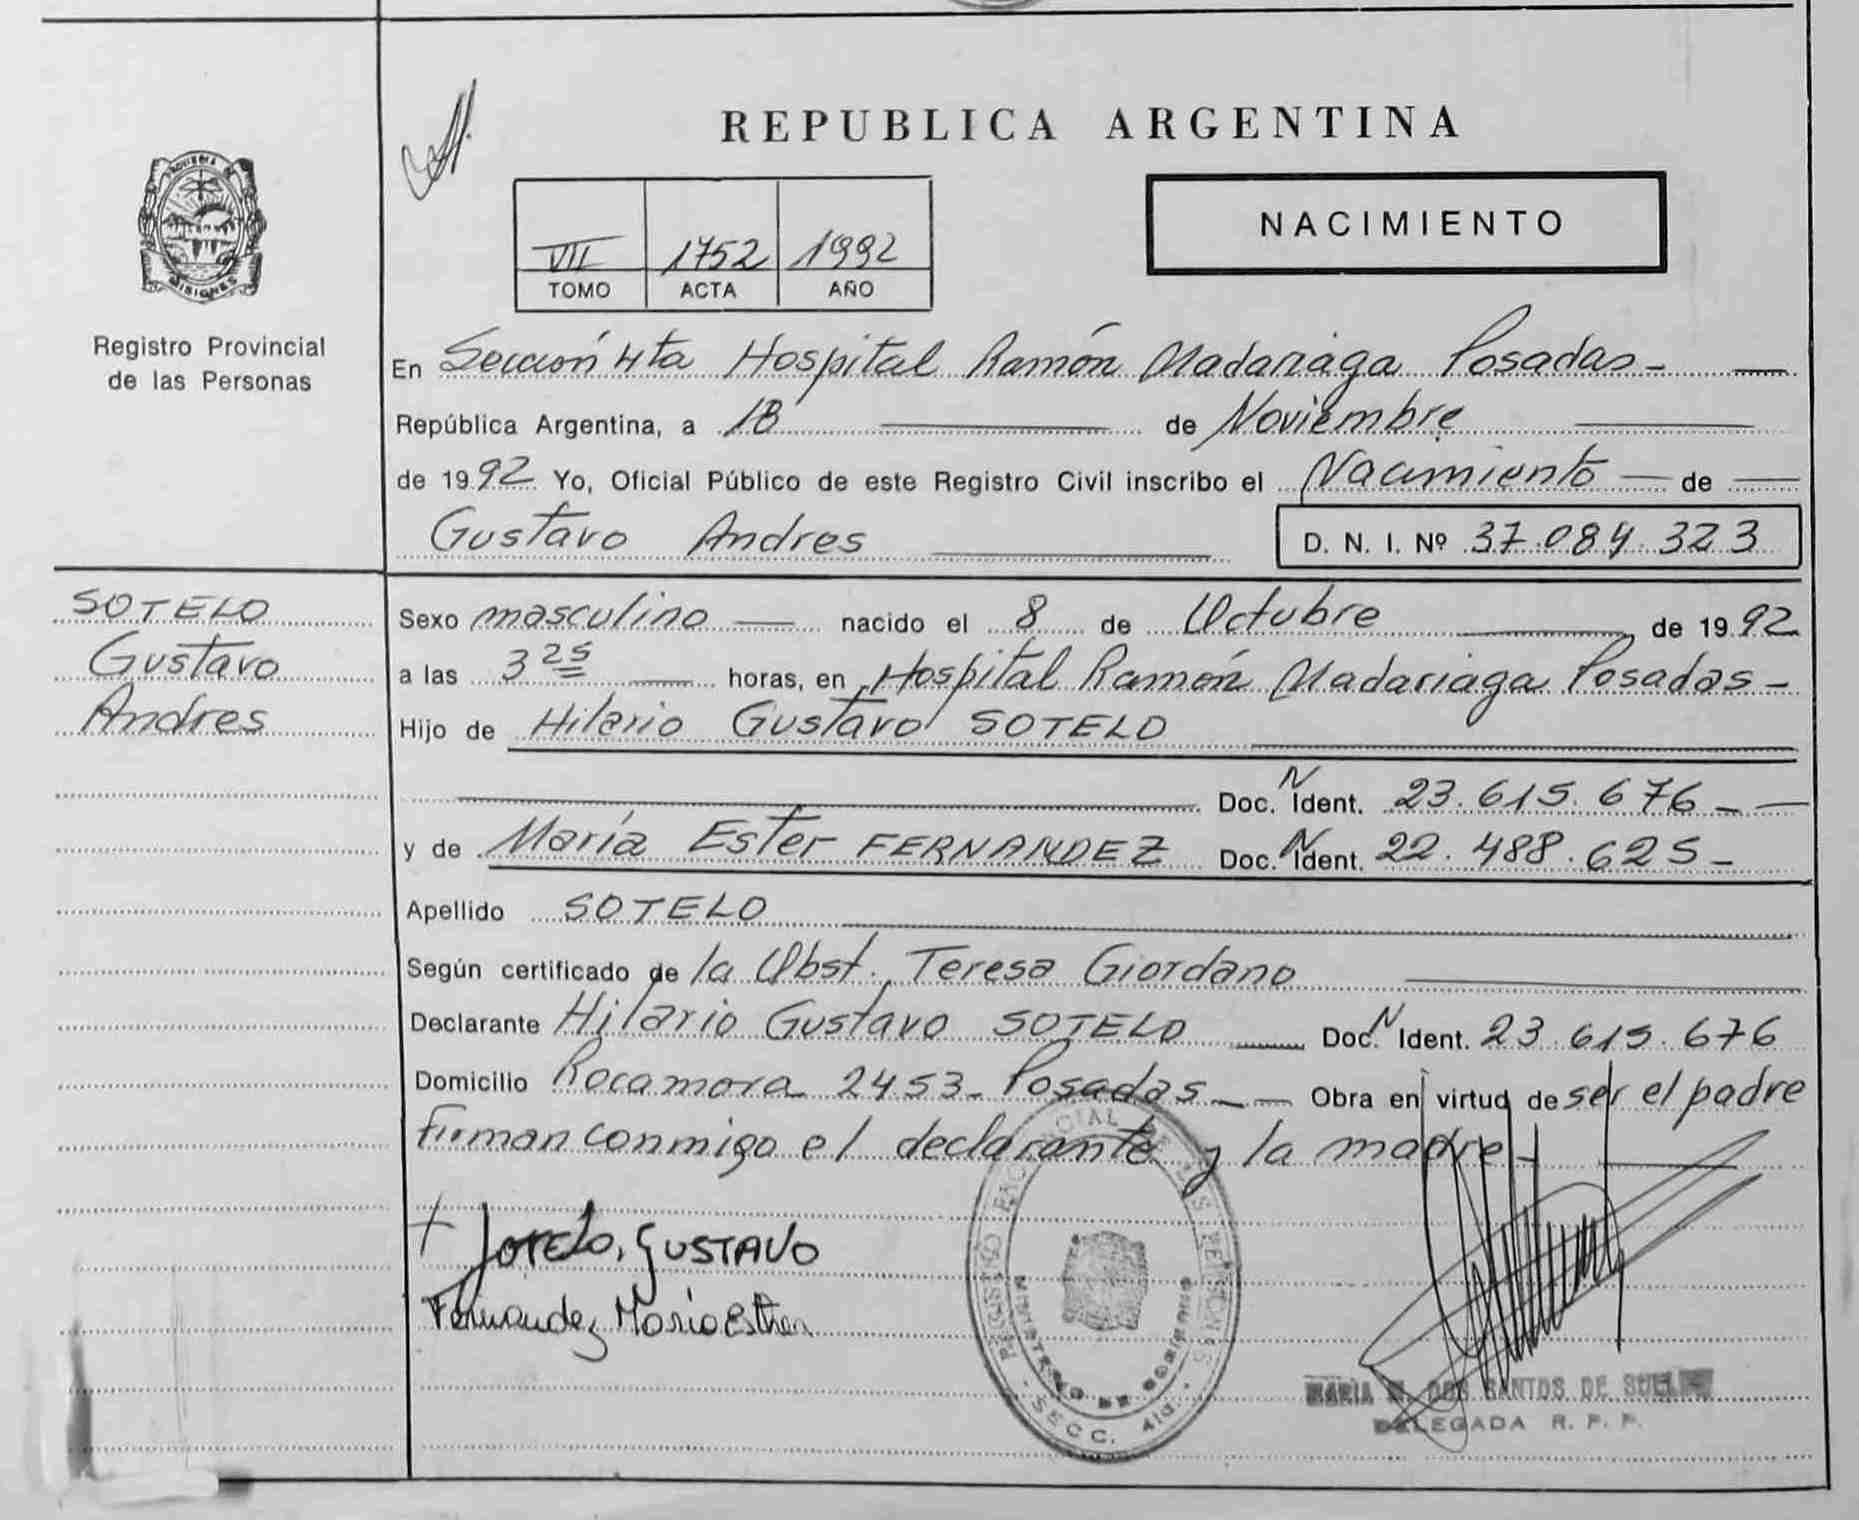 REPUBLICA ARGENTINA
NACIMIENTO
VII 1752 1992
TOMO ACTA AÑO
PROVINCIA DE
MISIONES
Registro Provincial
de las Personas
En Sección 4ta Hospital Ramón Madariaga Posadas -
República Argentina, a 18 de Noviembre
de 1992 Yo, Oficial Público de este Registro Civil inscribo el Nacimiento de
Gustavo Andres D. N. I. Nº 37.084.323
SOTELO
Gustavo
Andres
Sexo masculino nacido el 8 de Octubre de 1992
a las 3 25 horas, en Hospital Ramón Madariaga Posadas -
Hijo de Hilario Gustavo SOTELO
Doc. N Ident. 23.615.676 -
y de María Ester FERNANDEZ Doc. N Ident. 22.488.625 -
Apellido SOTELO
Según certificado de la Obst. Teresa Giordano
Declarante Hilario Gustavo SOTELO Doc. N Ident. 23.615.676
Domicilio Rocamora 2453 - Posadas - Obra en virtud de ser el padre
Firman conmigo el declarante y la madre -
SOTELO, GUSTAVO
Fernandez Maria Esther
REGISTRO PROVINCIAL DE LAS PERSONAS
MINISTERIO DE GOBIERNO
SECC. 4ta.
MARIA DOS SANTOS DE
DELEGADA R. P. P.